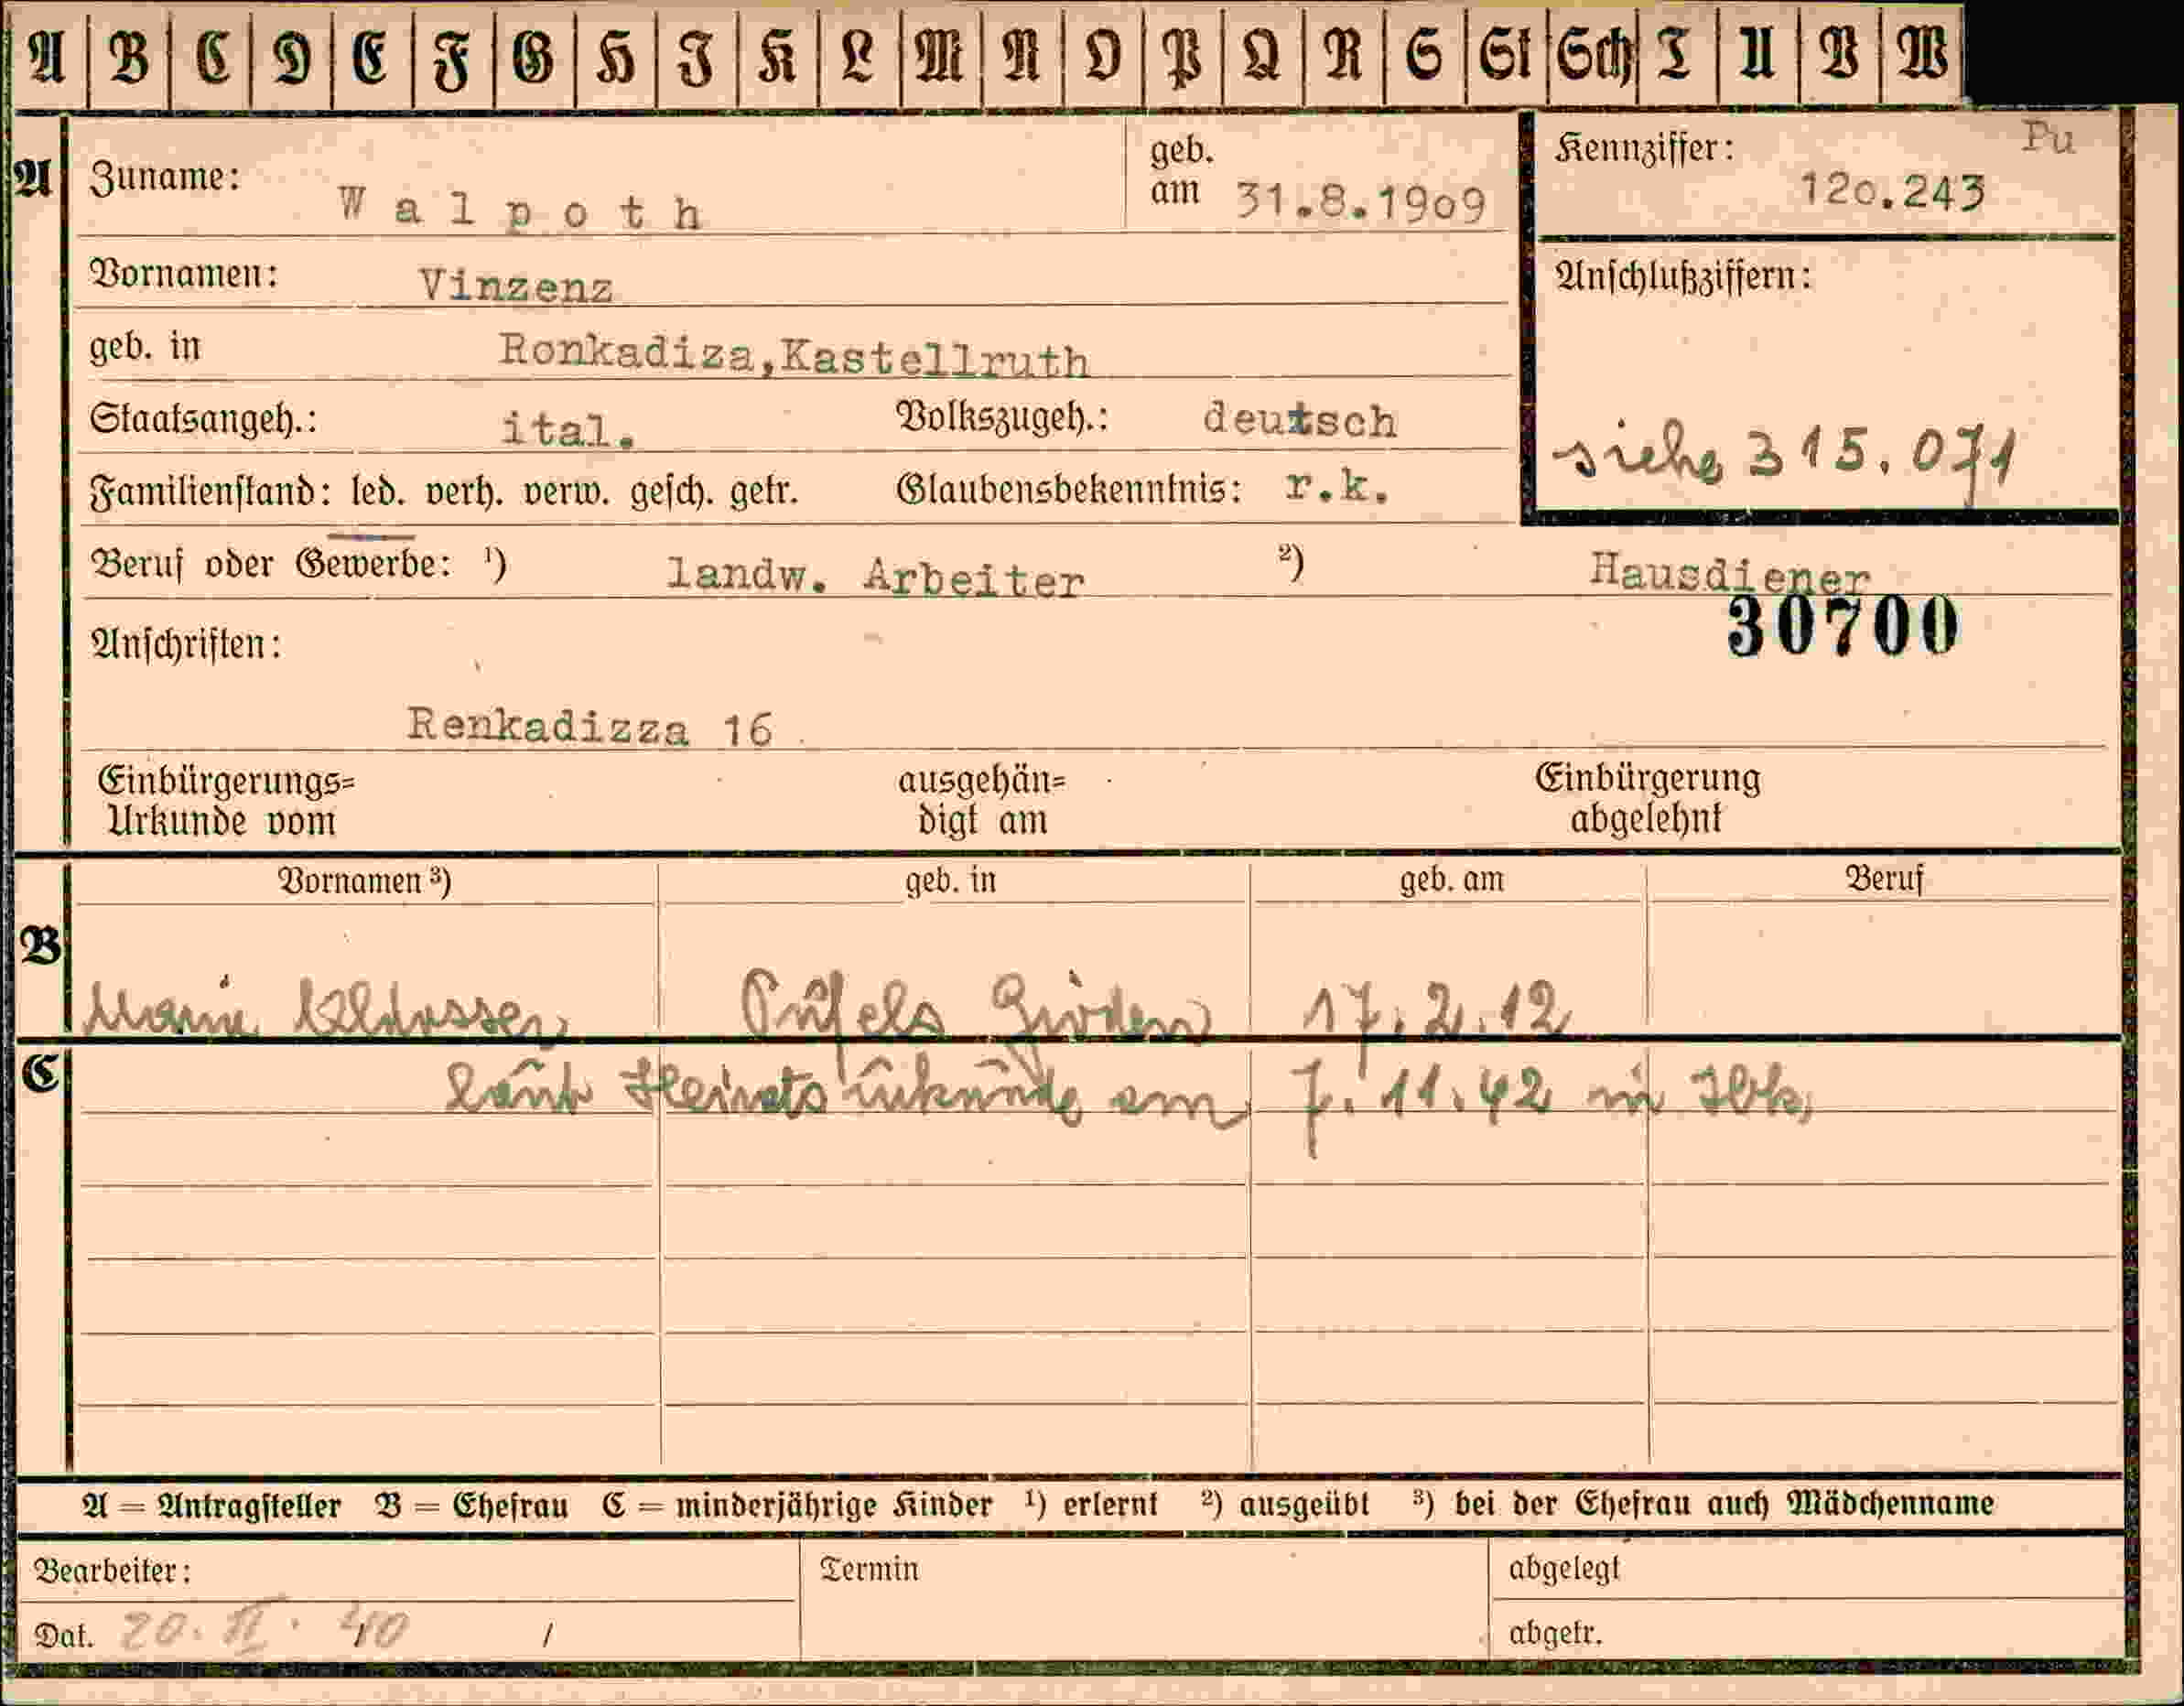 A B C D E F G H I K L M N O P Q R S St Sch T U V W
A Zuname: Walpoth geb. am 31.8.1909 Kennziffer: 120.243 Pu
Vornamen: Vinzenz Anschlußziffern:
geb. in Ronkadiza,Kastellruth
Staatsangeh.: ital. Volkszugeh.: deutsch siehe 315.071
Familienstand: led. verh. verw. gesch. getr. Glaubensbekenntnis: r.k.
Beruf oder Gewerbe: ¹) landw. Arbeiter ²) Hausdiener
Anschriften: 30700
Renkadizza 16
Einbürgerungs= ausgehän= Einbürgerung
Urkunde vom digt am abgelehnt
Vornamen ³) geb. in geb. am Beruf
B Maria Pufels Gröden 17.2.12
C laut Heiratsurkunde am 7.11.42 in Ibk.
A = Antragsteller B = Ehefrau C = minderjährige Kinder ¹) erlernt ²) ausgeübt ³) bei der Ehefrau auch Mädchenname
Bearbeiter: Termin abgelegt
Dat. 20. II. 40 / abgetr.